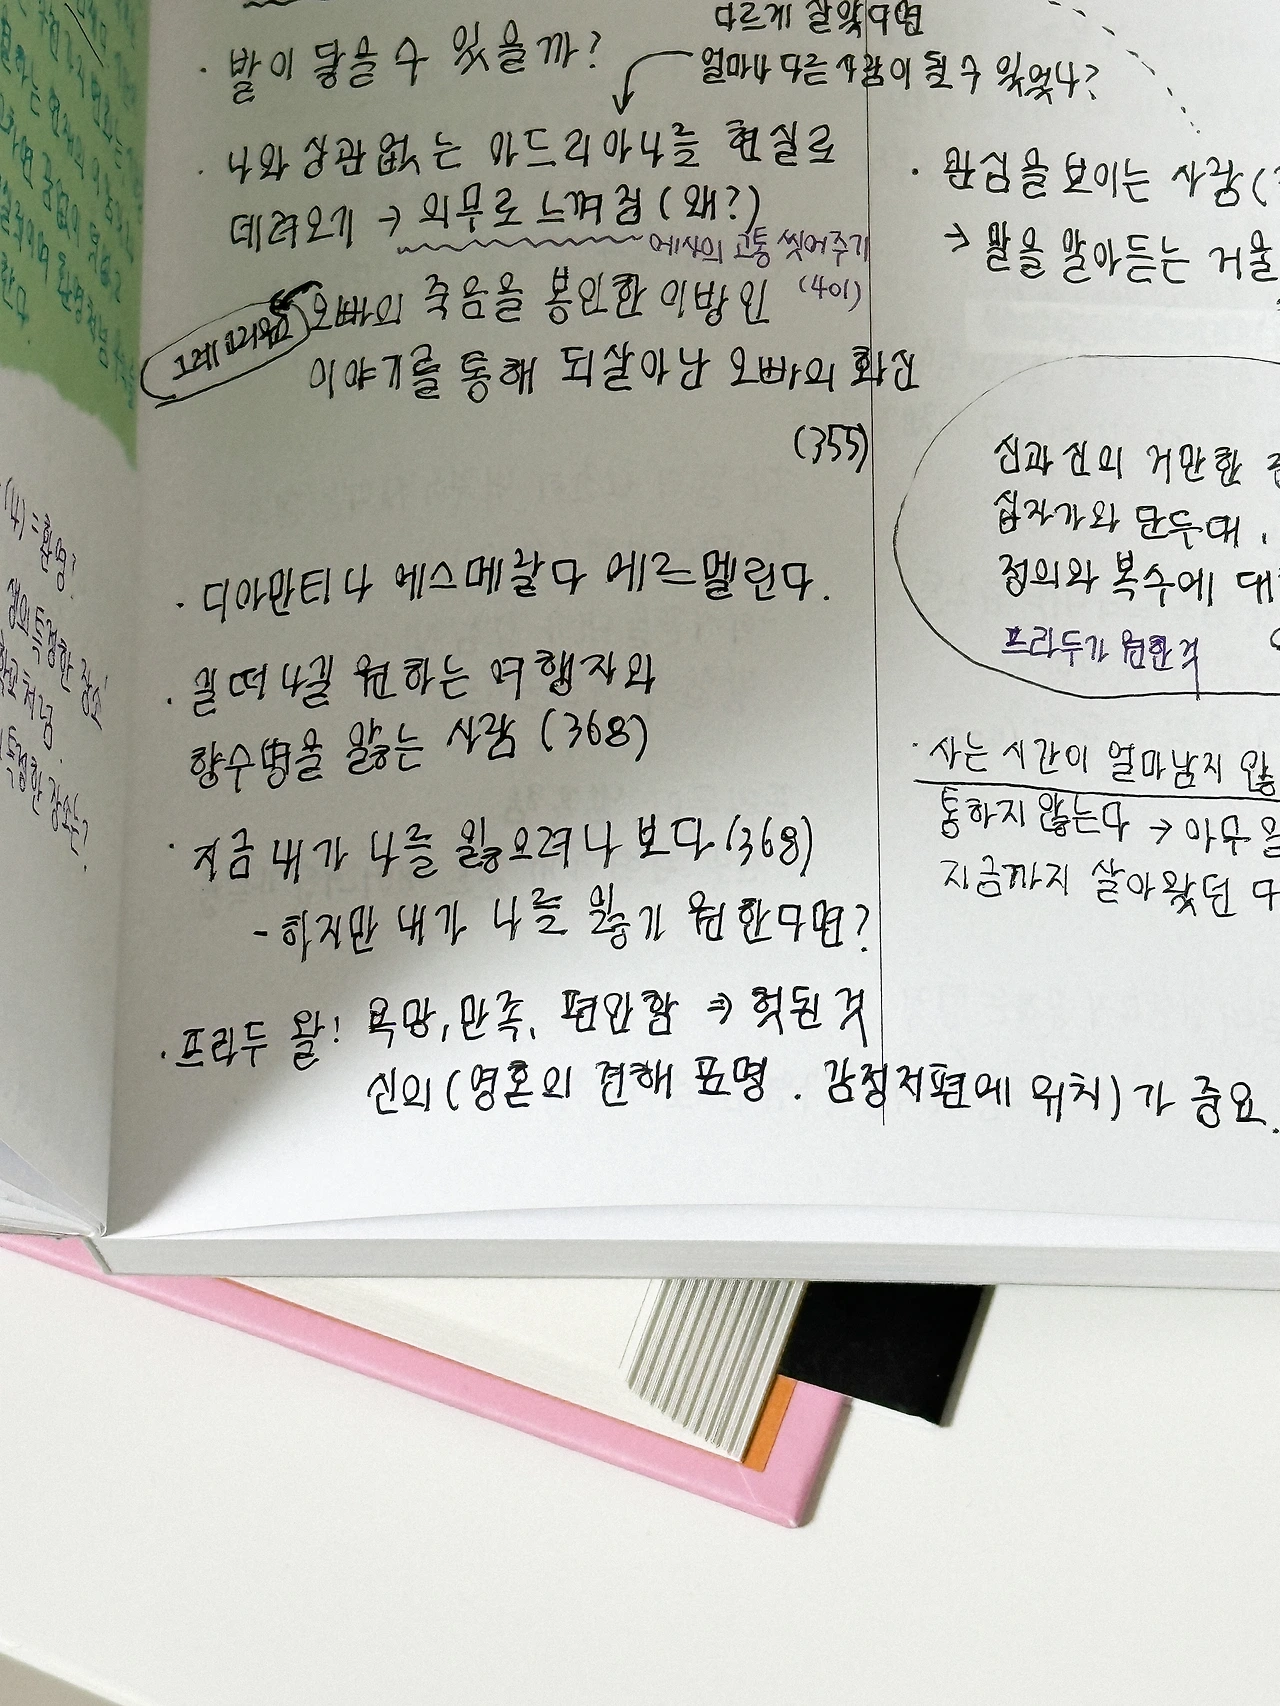 다르게 살았다면
얼마나 다른 사람이 될 수 있었나?
· 발이 닿을 수 있을까?
· 나와 상관없는 아드리아나를 현실로
데려오기 → 의무로 느껴짐 (왜?)
에사의 고통 씻어주기
(401)
그레고리우스
오빠의 죽음을 봉인한 이방인
이야기를 통해 되살아난 오빠의 화신
(355)
· 디아만티나 에스메랄다 에르멜린다.
· 길 떠나길 원하는 여행자와
향수병을 앓는 사람 (368)
· 지금 내가 나를 잃으려나 보다 (368)
- 하지만 내가 나를 잃기 원한다면?
· 프라두 왈! 욕망, 만족, 편안함 ⇒ 헛된 것
신의 (영혼의 견해 표명. 감정 저편에 위치)가 중요.
· 관심을 보이는 사람(
→ 말을 알아듣는 거울
신과 신의 거만한
십자가와 단두대,
정의와 복수에 대
프라두가 원한 것
· 사는 시간이 얼마 남지 않
통하지 않는다 → 아무 일
지금까지 살아왔던 다
(14) = 환영?
생의 특정한 장소
특정한 장소는?